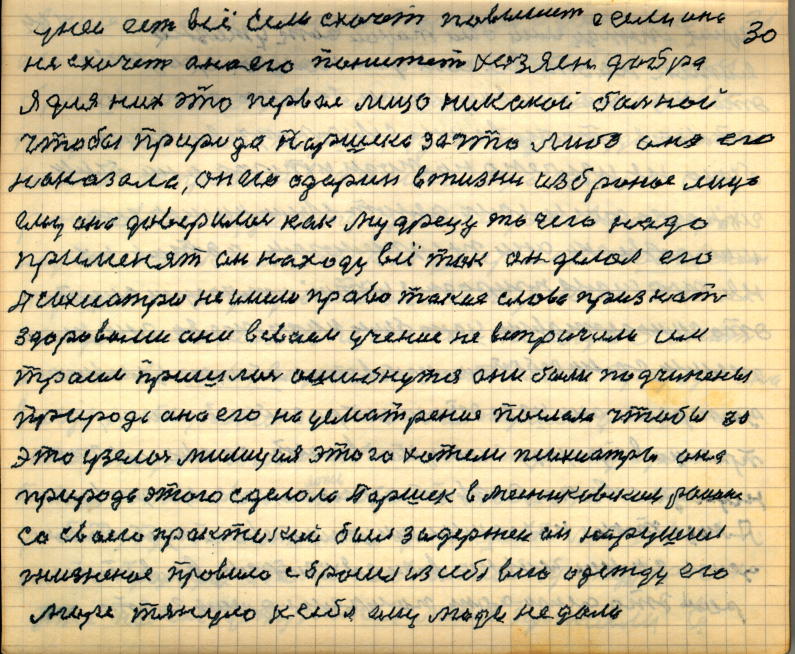 унеи ест всё если схочет повышает а если она 30
не схочет она его понижет хозяен добра
я для них это первое лицо никакой бальной
чтобы природа Паршека за что либо она его
наказала, он его одарил в жизни изброное лицо
ему она доверилась как мудрецу то чего надо
применят он находу всё так он делал его
Психиатры не имели право такие слова признать
здоровыми они в своем учение не встричили им
троим пришлось ошибнутся они были подчинены
природе она его на усматрение послала чтобы за
это взялась милиция этого хотели психиатры она
природа этого сделала Паршек в районе
со своего практикай был задержен он нарушил
жизненое провило сбросил из себя всю одежду его
море тянуло к себе ему люди не дали